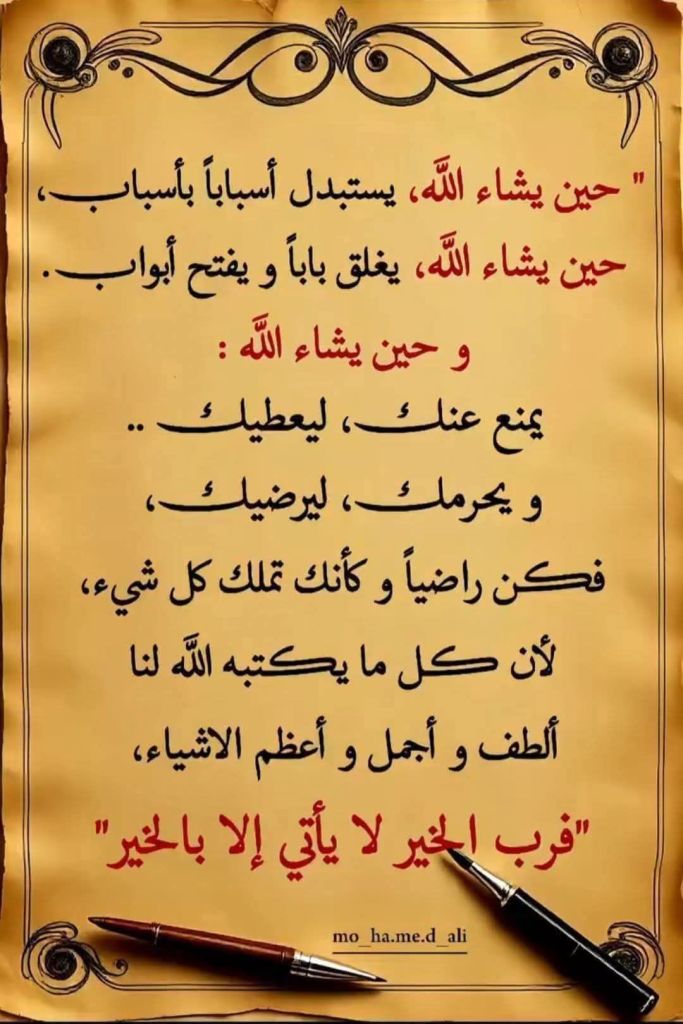 " حين يشاء اللَّه، يستبدل أسباباً بأسباب،
حين يشاء اللَّه، يغلق باباً و يفتح أبواب.
و حين يشاء اللَّه :
يمنع عنك، ليعطيك ..
و يحرمك، ليرضيك،
فكن راضياً و كأنك تملك كل شيء،
لأن كل ما يكتبه اللَّه لنا
ألطف و أجمل و أعظم الاشياء،
"فرب الخير لا يأتي إلا بالخير"
mo_ha.me.d_ali